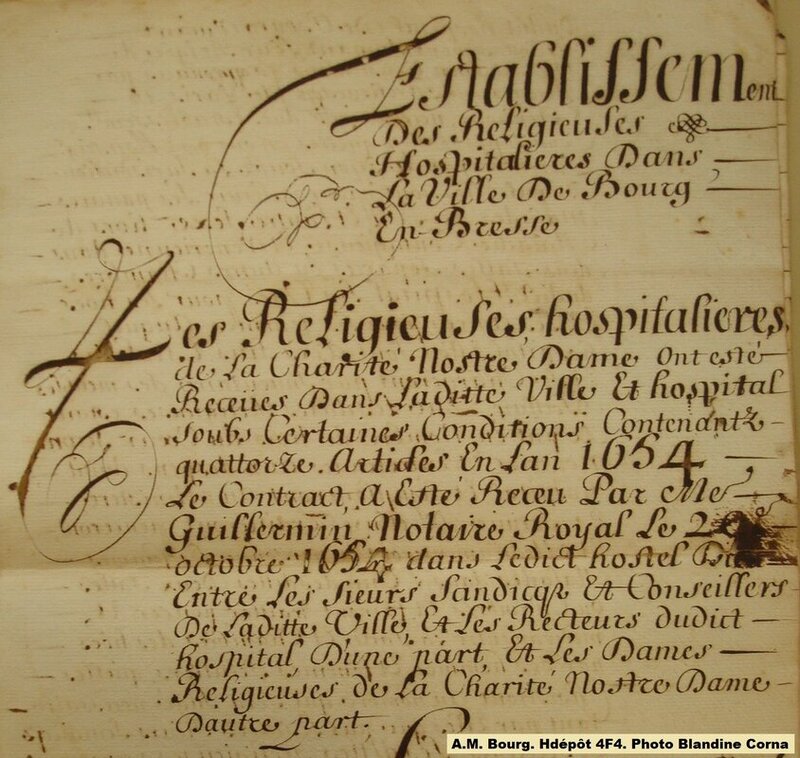 Establissement
Des Religieuses
Hospitalieres Dans
La Ville De Bourg
En Bresse
Les Religieuses, hospitalieres,
de La Charité Nostre Dame Ont esté
Receues Dans Laditte Ville Et hospital
soubs Certaines Conditions Contenantz
quattorze Articles En Lan 1654
Le Contract A Esté Receu Par Me
Guillermin Notaire Royal Le
octobre 1654 dans Ledict hostel
Entre Les Sieurs Sandicqz Et Conseillers
De Laditte Ville, Et Les Recteurs dudict
hospital, Dune part, Et Les Dames
Religieuses de La Charité Nostre Dame
Dautre part.
A.M. Bourg. Hdépôt 4F4. Photo Blandine Corna